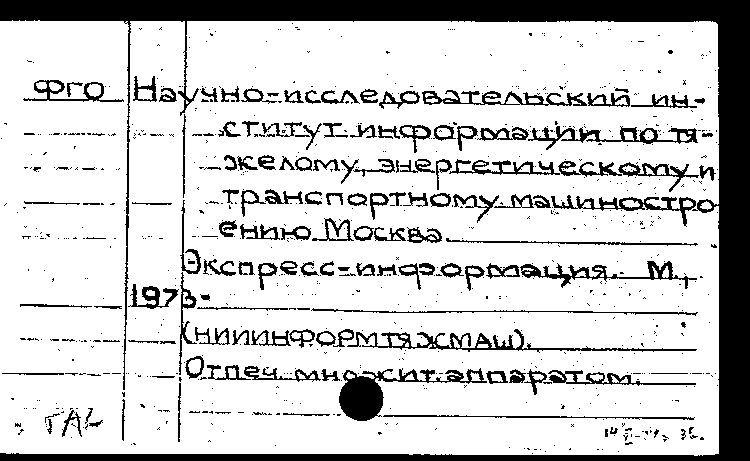 ФГО Научно-исследовательский ин-
ститут информации по тя-
желому, энергетическому и
транспортному машиностро
ению Москва.
Экспресс-информация. М.,
1973-
(НИИИНФОРМТЯЖМАШ).
Отпеч. множит. аппаратом.